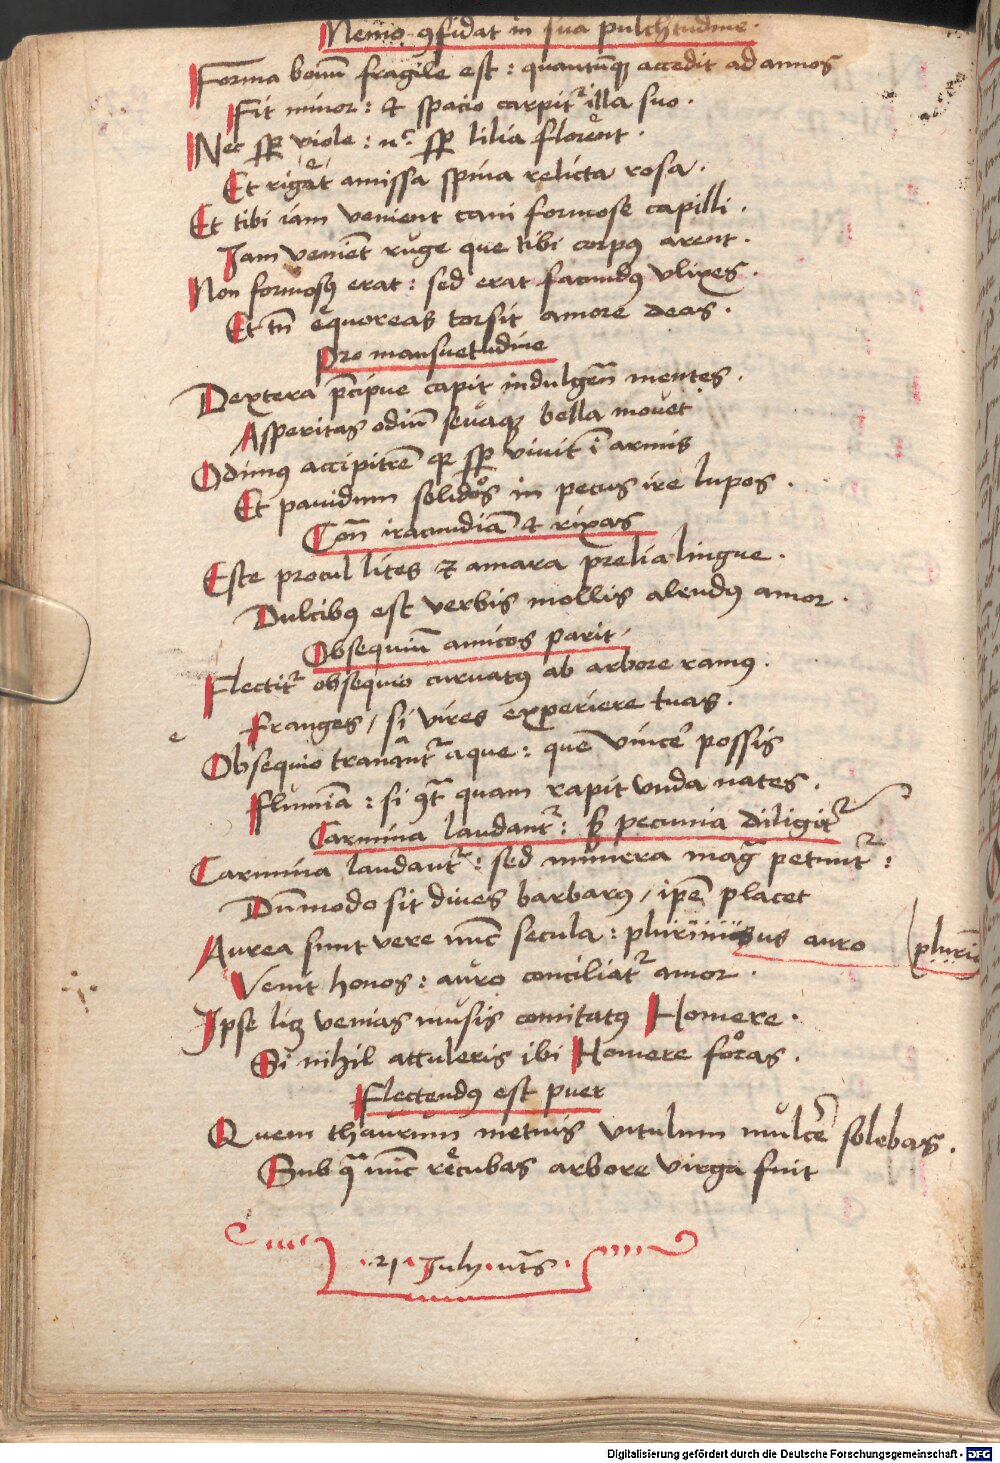 Nemo ꝯfidat in sua pulchtudine.
Forma bonū fragile est : quantūqꝫ accedit ad annos
Fit minor : et spacio carpitᷣ illa suo.
Nec sꝑ viole : nͨ sꝑ lilia florent.
Et riget amissa spina relicta rosa.
Et tibi iam venient cani formose capilli.
Jam veniēt ruge que tibi corpꝰ arent.
Non formosꝰ erat : sed erat facundꝰ vlixes.
Et tn̄ equoreas torsit amore deas.
Pro mansuetudine
Dextera p̄cipue capit indulgen̄ mentes.
Asperitas odiū sevaqꝫ bella movet
Odimꝰ accipitrē qꝛ sꝑ vivit ī armis
Et pavidum solidos in pecus ire lupos.
Con̄ iracundiā et rixas
Este procul lites et amara prelia lingue.
Dulcibꝰ est verbis mollis alendꝰ amor.
Obsequiū amicos parit.
Flectitᷣ obsequio curvatꝰ ab arbore ramꝰ.
Franges / si vires experiere tuas.
e
Obsequio tranantᷣ aque : que vincē possis
Flumīa : si ꝯt̄ quam rapit vnda nates.
Carmina laudantᷣ : sꝫ pecunia diligitᷣ
Carmina laudantᷣ : sed munera maḡ petuntᷣ :
Dūmodo sit dives barbarꝰ / ip̄e placet
Aurea sunt vere nūc secula : plurimus auro
plurim̄
Venit honos : auro conciliatᷣ amor.
Ipse licꝫ venias musis comitatꝰ Homere.
Si nihil attuleris ibi Homere foras.
Flectendꝰ est puer
Quem thaurum metuis vitulum mulcē solebas.
Sub qua nūc recubas arbore virga fuit
.21. July. ut̄s.
Digitalisierung gefördert durch die Deutsche Forschungsgemeinschaft - DFG